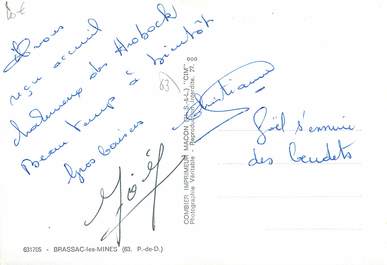 20€
Avons
reçu accueil
chaleureux des Hobock
Beau temps à bientôt
Gros baisers
Christiane
Joël
63
Joël s'ennuie
des baudets
COMBIER IMPRIMEUR MACON (S.-&-L.) "CIM"
Photographie Véritable - Reproduction Interdite. 23.
631705 - BRASSAC-les-MINES (63. P.-de-D.)